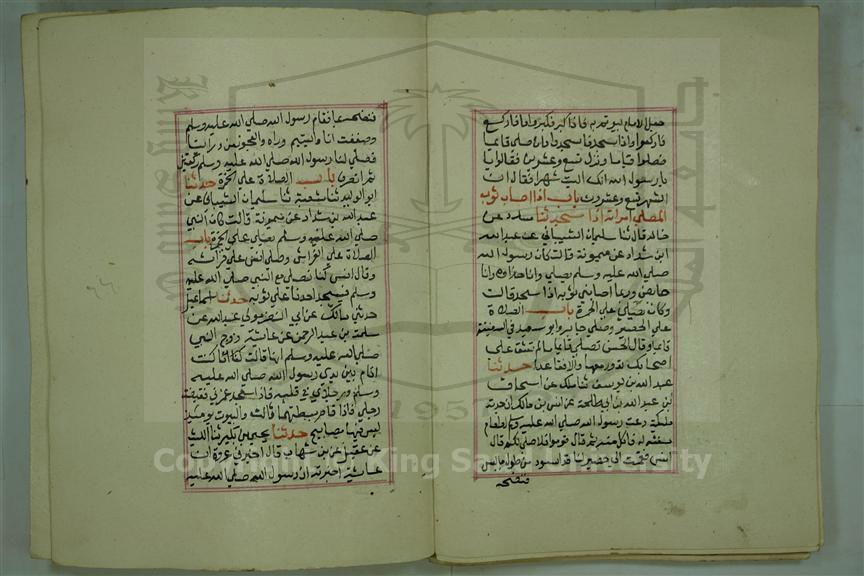 جعل الامام ليوتم به فاذا كبر فكبروا واذا ركع
فاركعوا واذا سجد فاسجدوا وان صلى قايما
فصلوا قياما ونزل لتسع وعشرين فقالوا يا
يا رسول الله انك اليت شهرا فقال ان
الشهر تسع وعشرون باب اذا اصاب ثوب
المصلي امراته اذا سجد ثنا مسدد عن
خالد قال ثنا سليمان الشيباني عن عبد الله
ابن شداد عن ميمونة قالت كان رسول الله
صلى الله عليه وسلم يصلي وانا حذاوه وانا
حايض وربما اصابني ثوبه اذا سجد قالت
وكان يصلي على الخمرة باب الصلاة
على الحصير وصلى جابر وابو سعيد في السفينة
قايما وقال الحسن تصلي قايما ما لم تشق على
اصحابك تدور معها والا فقاعدا حدثنا
عبد الله بن يوسف ثنا ملك عن اسحاق
بن عبد الله بن ابي طلحة عن انس بن مالك ان جدته
مليكة دعت رسول الله صلى الله عليه وسلم لطعام
صنعته له فاكل منه ثم قال قوموا فلاصلي لكم قال
انس فقمت الى حصير لنا قد اسود من طول ما لبس
فنضحته
فنضحته بما فقام رسول الله صلى الله عليه وسلم
وصففت انا واليتيم وراه والعجوز من وراينا
فصلى لنا رسول الله صلى الله عليه وسلم ركعتين
ثم انصرف باب الصلاة على الخمرة حدثنا
ابو الوليد ثنا شعبة ثنا سليمان الشيباني عن
عبد الله بن شداد عن ميمونة قالت كان النبي
صلى الله عليه وسلم يصلي على الخمرة باب
الصلاة على الفراش وصلى انس على فراشه
وقال انس كنا نصلي مع النبي صلى الله عليه
وسلم فيسجد احدنا على ثوبه حدثنا اسماعيل
حدثني مالك عن ابي النضر مولى عبد الله عن
سلمة بن عبد الرحمن عن عائشة زوج النبي
صلى الله عليه وسلم انها قالت كنت
انام بين يدي رسول الله صلى الله عليه
وسلم ورجلاي في قبلته فاذا سجد غمزني فقبضت
رجلي فاذا قام بسطتهما قالت والبيوت يوميذ
ليس فيها مصابيح حدثنا يحيى بن بكير ثنا الليث
عن عقيل عن بن شهاب قال اخبرني عروة ان
عائشة اخبرته ان رسول الله صلى الله عليه
1957
Copyright © King Saud University